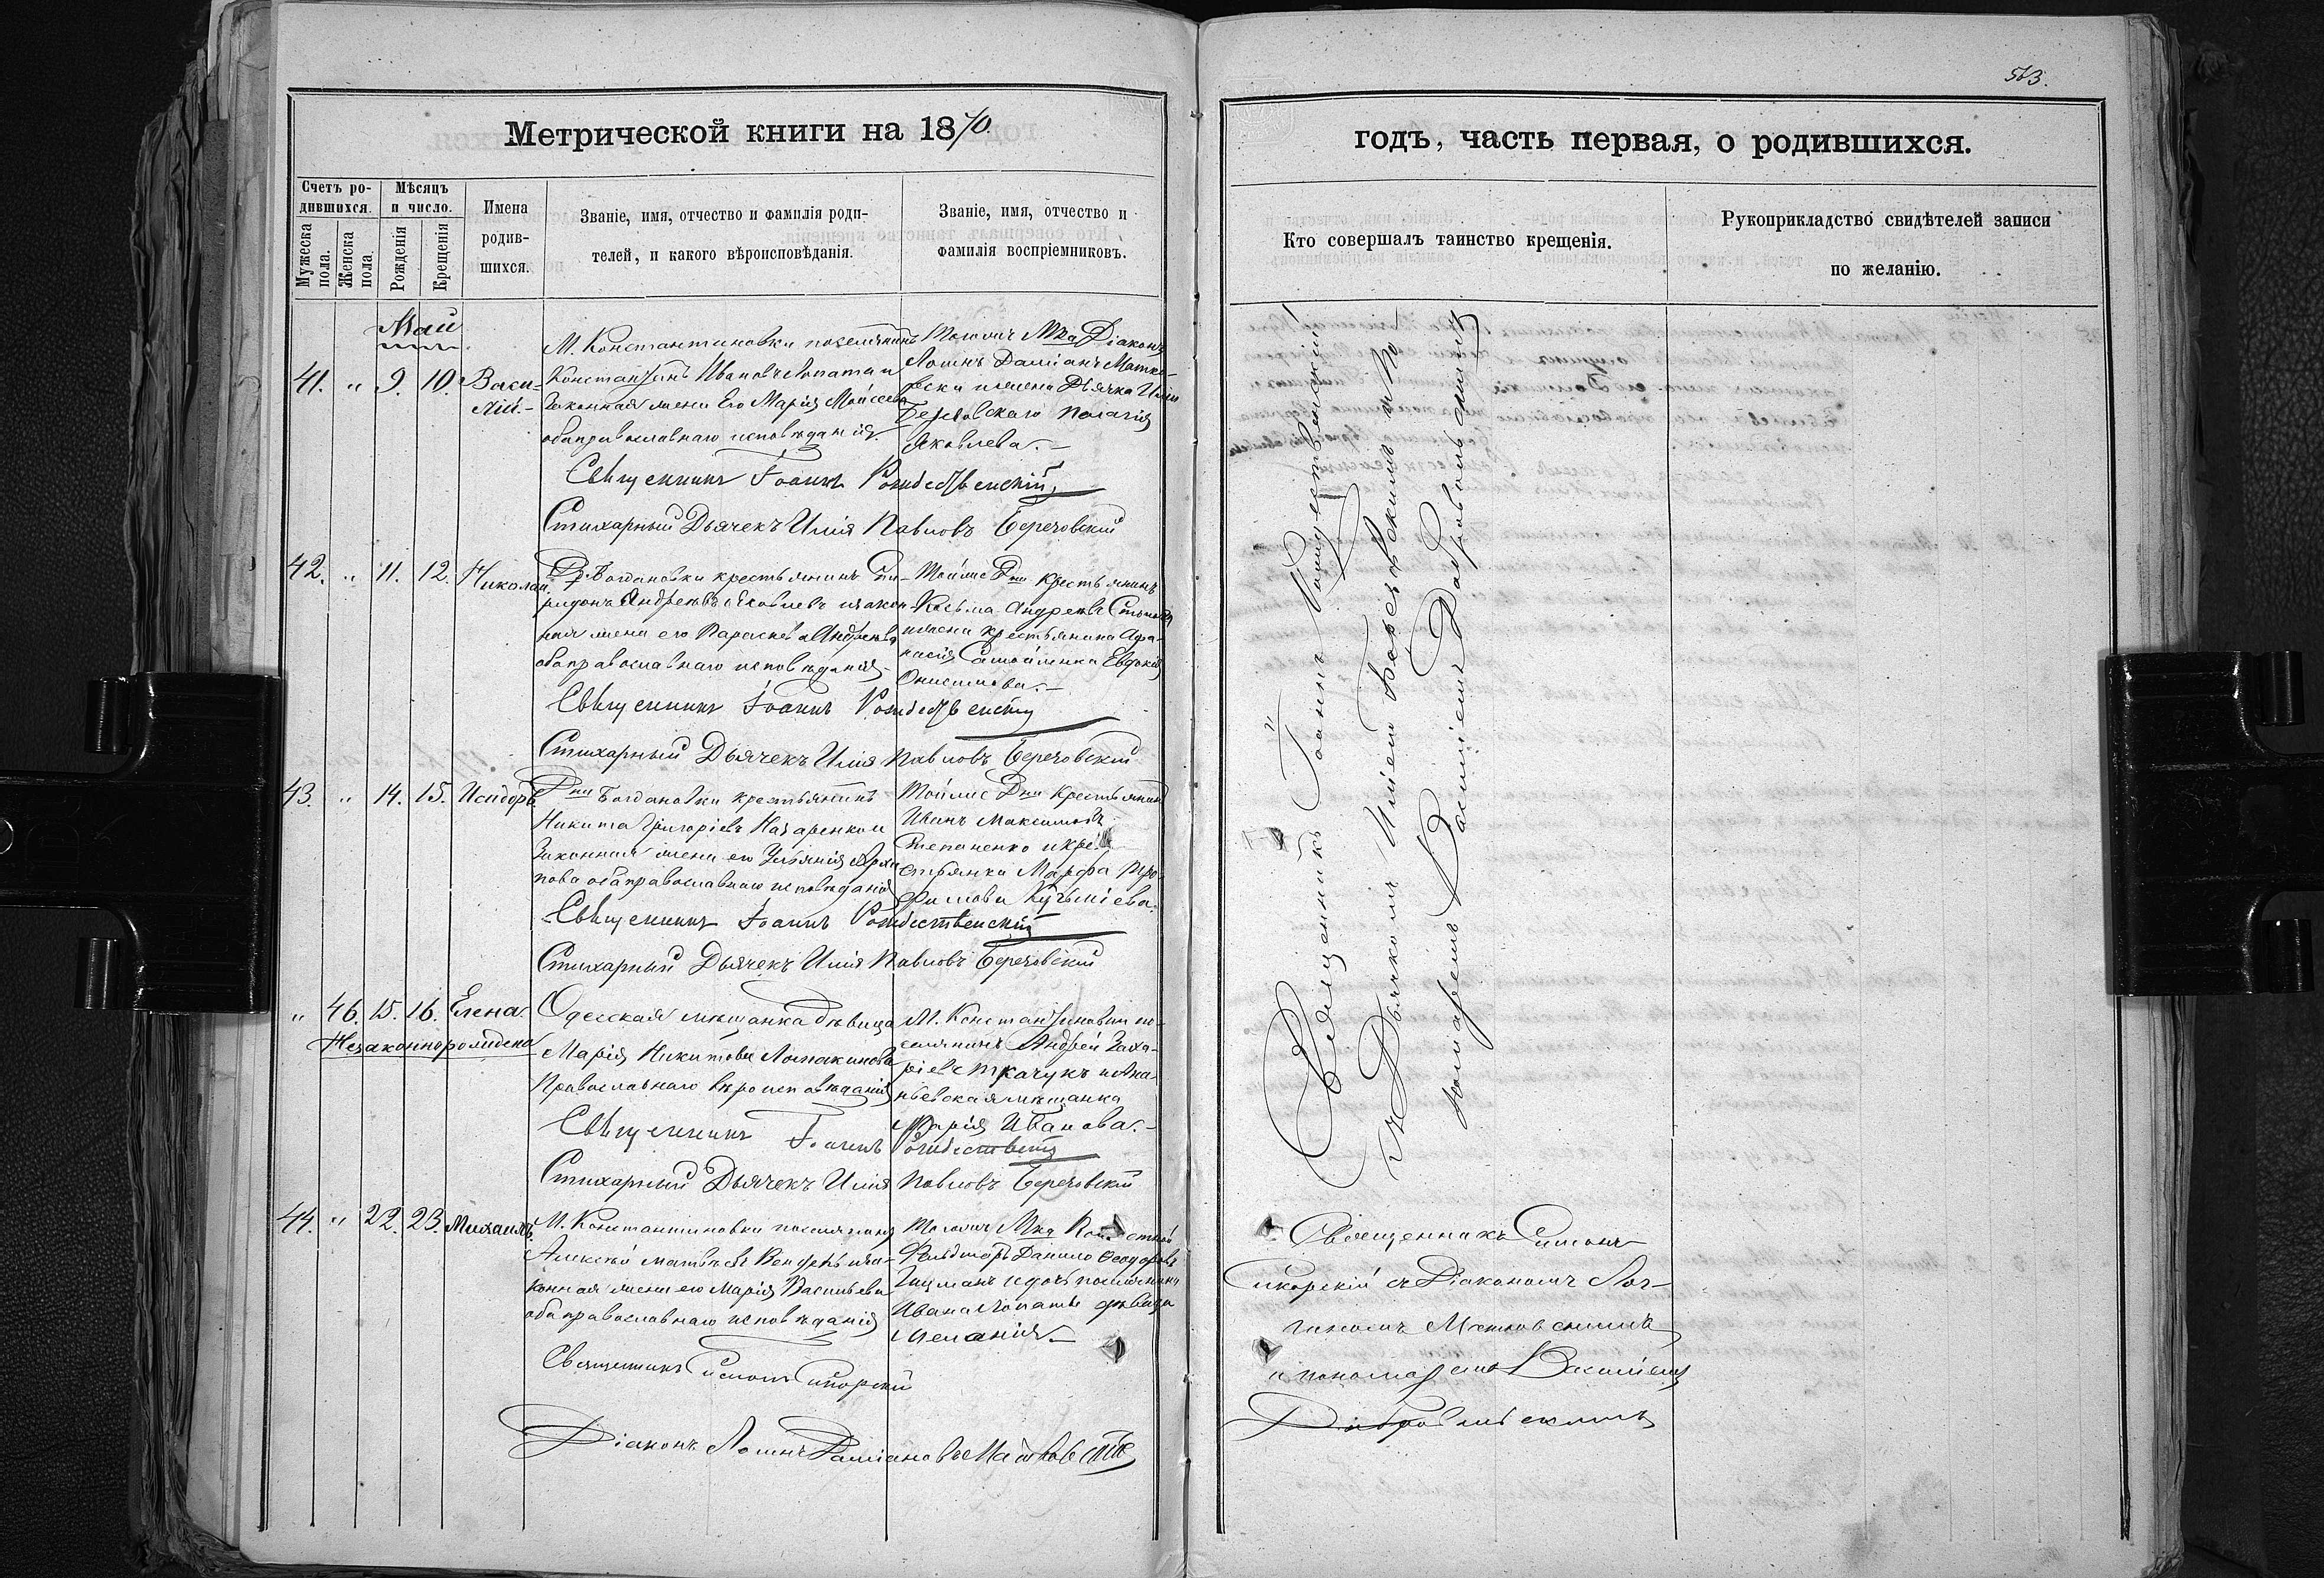 563.
Метрической книги на 1870
годъ, часть первая, о родившихся.
Счетъ ро-
дившихся.
Мужеска
пола.
Женска
пола
Мѣсяцъ
и число.
Рожденія
Крещенія
Имена
родив-
шихся.
Званіе, имя, отчество и фамилія роди-
телей, и какого вѣроисповѣданія.
Званіе, имя, отчество и
фамилія воспріемниковъ.
Кто совершалъ таинство крещенія.
Рукоприкладство свидѣтелей записи
по желанію.
Май
41. " 9. 10. Васи-
лій.-
М. Константиновки поселянинъ
Константинъ Ивановъ Лопата и
законная жена Его Марія Моисеева
оба православнаго исповѣданія.
Тогожъ М-ка Діаконъ
Логинъ Даміанъ Матко-
вски и жена Дьячка Иліи
Березовскаго Пелагія
Яковлева.-
Священникъ Іоаннъ Рождественскій
Стихарный Дьячекъ Илія Павловъ Березовскій
42. " 11. 12. Николай.
Д. Богдановки крестьянинъ Спи-
ридонъ Андреевъ Яковлевъ и закон-
ная жена его Параскева Андреева
оба православнаго исповѣданія
Той же Д-ни крестьянинъ
Косьма Андреевъ
и жена крестьянина Афа-
насія Самойленка Евдокія
Онисимова.-
Священникъ Іоаннъ Рождественскій
Стихарный Дьячекъ Илія Павловъ Березовскій
43. " 14. 15. Исидоръ.
Д-ни Богдановки крестьянинъ
Никита Григоріевъ Назаренко и
Законная жена его Ульянія Архи
пова оба православнаго исповѣданія
Той же Д-ни Крестьянинъ
Иванъ Максимовъ
Степаненко и кре-
стьянка Марфа Тро-
фимова Кузьміева.
Священникъ Іоаннъ Рождественскій
Стихарный Дьячекъ Илія Павловъ Березовскій
" 46. 15. 16. Елена.
Незаконнорождена
Одесская мѣщанка дѣвица
Марія Никитова Ломакинова
Православнаго вѣроисповѣданія
М. Константиновки по-
селянинъ Андрей Заха-
ріевъ Ткачукъ и Ана-
ньевская мѣщанка
Марія Иванова.-
Священникъ Іоаннъ Рождественскій
Стихарный Дьячекъ Илія Павловъ Березовскій
44. " 22. 23. Михаилъ.
М. Константиновки поселянинъ
Алексѣй Матвѣевъ и за-
конная жена его Марія Васильева
оба православнаго исповѣданія
Тогожъ М-ка
Фельдшеръ Данило Ѳеодоровъ
и дочь поселянина
Ивана Лопаты дѣвица
Меланія.-
Священникъ Симонъ Сикорскій
Діаконъ Логинъ Даміановъ Матковскій
Священникъ Іоаннъ Рождественскій
съ Дьячкомъ Иліею Березовскимъ и По
номаремъ Василіемъ Добровольскимъ
Священникъ Симонъ
Сикорскій съ Діакономъ Лог-
гиномъ Матковскимъ
и пономаремъ Василіемъ
Добровольскимъ